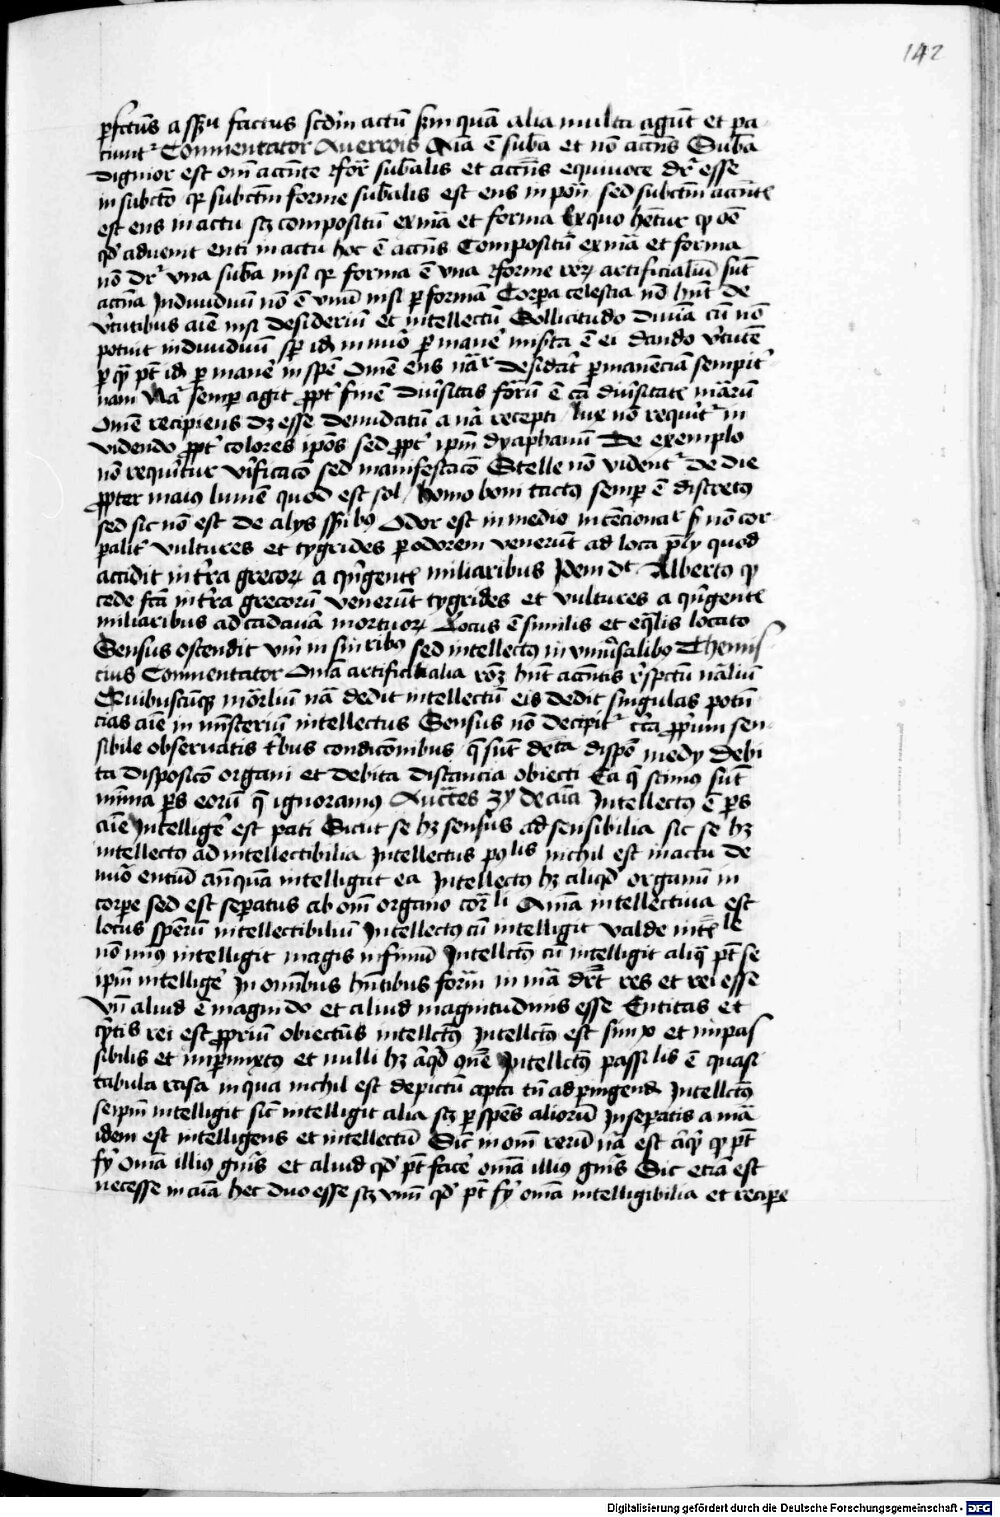 142
pfctus a ssu factus scdm actu sm qua alia multa agut et pa
tiunt Commentator Averrois Aia e suba et no accns Suba
dignior est om accnte Forr subalis et accns equivoce dr esse
in subcto qr subctm forme subalis est ens in pon sed subctm accnte
est ens in actu scz compositu ex ma et forma Ex quo hetur qp oe
qd advenit enti in actu hoc e accns Compositu ex ma et forma
no dr una suba nisi qr forma e una Forme rerz artificialiu sut
accna Individuu no e unu nisi p forma Corpa celestia no hnt de
vtutibus aie nisi desideriu et intellectu Sollicitudo divia cu no
potuit individuu sp id in nuo pmane mista e ei dando vtute
p qua pt id pmane in spe Ome ens nar desidat pmanencia sempit
nam Na semp agit ppt fine Divsitas faru e ca divsitate maru
Ome recipiens dz esse denudatu a na recepti lux no requirit in
videndo ppt colores ipos sed ppt ipm dyaphanu De exemplo
no requiritur vificaco sed manifestaco Stelle no vident de die
ppter maius lume quod est sol homo boni tactus semp e discretus
sed sic no est de alys ssibus Odor est in medio intencionar s no cor
palit vultures et tygrides p odorem venerut ad loca ply quod
accidit in tra grecorz a qngente miliaribus Idem dt Albertus qp
cede fca in tra grecoru venerut tygrides et vultures a qngente
miliaribus ad cadava mortuorz Locus e similis et eqlis locato
Sensus ostendit um in sinribus sed intellectus in unusalibus Themis
cius Commentator Oma artificialia roz hnt accntis rspctu naliu
Quibuscuqz morliu na dedit intellectu eis dedit singulas potn
cias aie in misteriu intellectus Sensus no decipit cca ppium sen
sibile observatis tbus condiconibus q sut deta dispo medy debi
ta disposico organi et debita distancia obiecti Ea q scimus sut
minima ps eoru q ignoramus Auctes 3y de aia Intellectus e ps
aie Intellige est pati Sicut se hz sensus ad sensibilia sic se hz
intellectus ad intellectibilia Intellectus polis nichil est in actu de
nuo entiu anqua intelligat ea Intellectus hz aliqd organu in
corpe sed est sepatus ab om organo corli Aima intellectiva est
locus speru intellectibiliu Intellectus cu intelligit valde intele
no mius intelligit magis infimu Intellctus cu intelligit aliq pt se
ipm intellige In omibus hntibus form in ma drt res et rei esse
Un aliud e magnido et aliud magnitudinis esse Entitas et
qtis rei est ppriu obiectus intellctus Intellctus est simpx et impas
sibilis et impmixtus et nulli hz aqd qne Intellctus passlis e quasi
tabula rasa in qua nichil est depictu apta tn ad pingend Intellctus
seipm intelligit sic intelligit alia scz p spes alioru In sepatis a ma
idem est intelligens et intellectu Sic in om reru na est aliq qp pt
fy oma illius gnis et aliud qd pt face oma illius gnis Sic etia est
necesse in aia hec duo esse scz unu qd pt fy oma intelligibilia et recipe
Digitalisierung gefördert durch die Deutsche Forschungsgemeinschaft - DFG